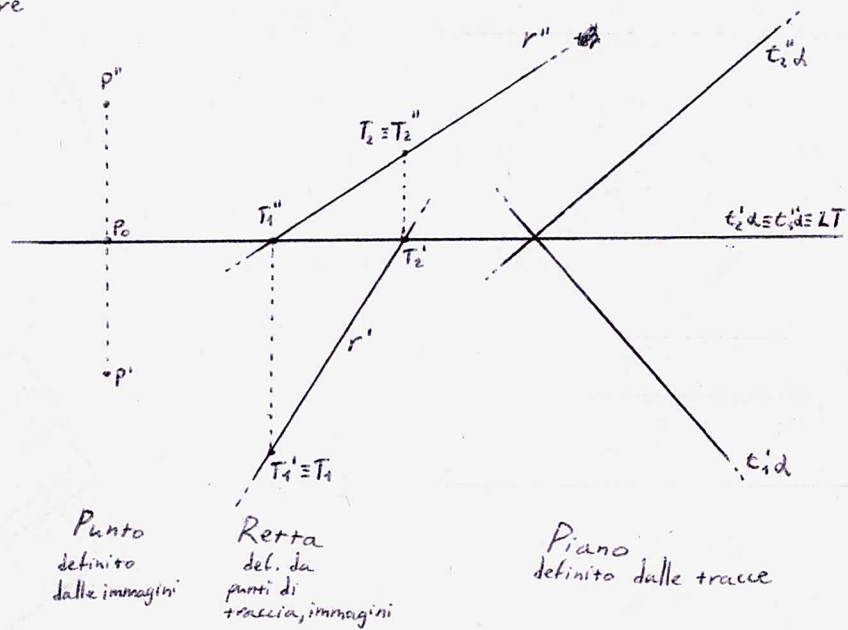 re
P"
r"
t₂"α
T₂≡T₂"
T₁"
P₀
T₂'
t₂'α≡t₁"α≡LT
r'
P'
T₁'≡T₁
t₁'α
Punto
definito
dalle immagini
Retta
def. da
punti di
traccia, immagini
Piano
definito dalle tracce